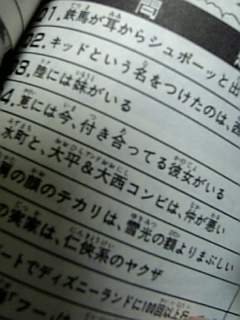 問
01.鉄馬が耳からシュポーッと出
02.キッドという名をつけたのは、
3.陸には妹がいる
4.恵には今、付き合ってる彼女がいる
水町と、大平&大西コンビは、仲が悪い
の顔のテカリは、雪光の顔よりまぶしい
の実家は、仁侠系のヤクザ
ートでディズニーランドに100回以上行